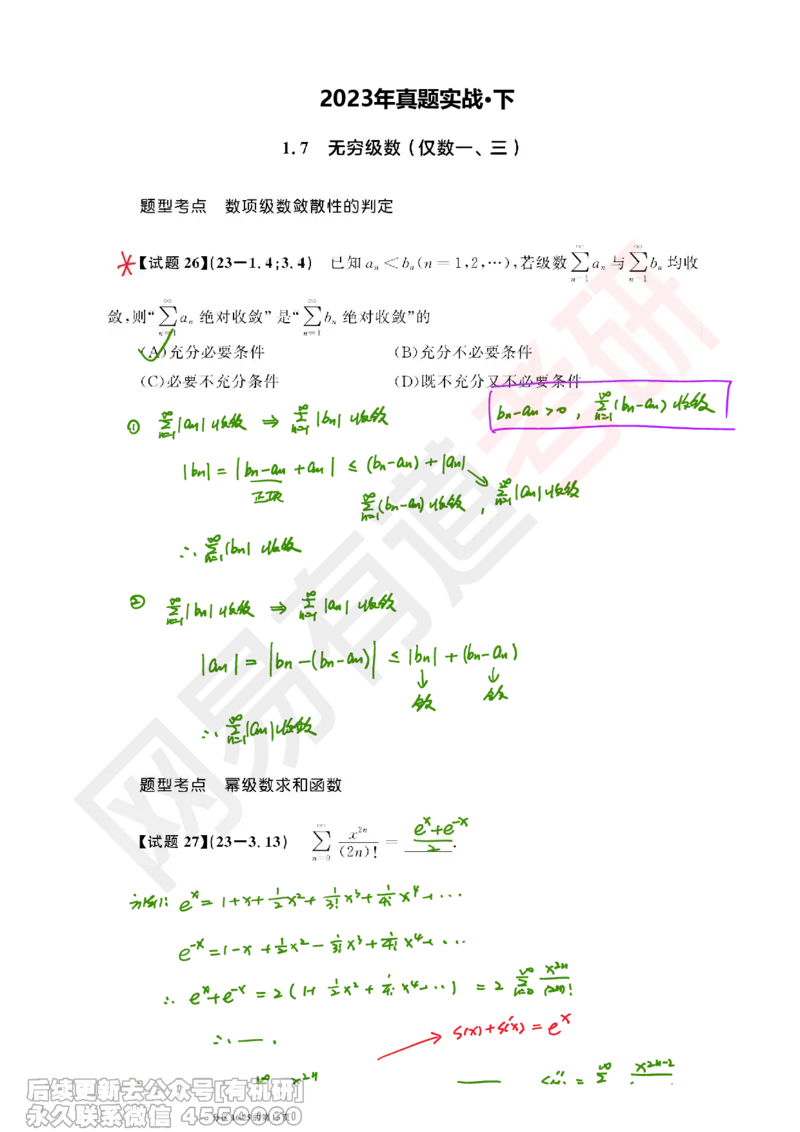 2023年真题实战·下
1.7 无穷级数(仅数一、三)
题型考点 数项级数敛散性的判定
*【试题 26】(23-1.4;3.4) 已知 aₙ < bₙ (n = 1,2,…),若级数 ∑_{n=1}^{∞} aₙ 与 ∑_{n=1}^{∞} bₙ 均收
敛,则“∑_{n=1}^{∞} aₙ 绝对收敛”是“∑_{n=1}^{∞} bₙ 绝对收敛”的
(A)充分必要条件 (B)充分不必要条件
(C)必要不充分条件 (D)既不充分又不必要条件
bₙ-aₙ>0, ∑_{n=1}^{∞}(bₙ-aₙ) 收敛
① ∑_{n=1}^{∞}|aₙ| 收敛 ⇒ ∑_{n=1}^{∞}|bₙ| 收敛
|bₙ| = |bₙ-aₙ+aₙ| ≤ (bₙ-aₙ)+|aₙ|
正项 ∑_{n=1}^{∞}(bₙ-aₙ)收敛, ∑_{n=1}^{∞}|aₙ|收敛
∴ ∑_{n=1}^{∞}|bₙ| 收敛
② ∑_{n=1}^{∞}|bₙ| 收敛 ⇒ ∑_{n=1}^{∞}|aₙ| 收敛
|aₙ| = |bₙ-(bₙ-aₙ)| ≤ |bₙ|+(bₙ-aₙ)
↓ ↓
敛 敛
∴ ∑_{n=1}^{∞}|aₙ|收敛
题型考点 幂级数求和函数
【试题 27】(23-3.13) ∑_{n=0}^{∞} x^{2n}/(2n)! = (e^x+e^{-x})/2.
法1: e^x = 1+x+1/2 x²+1/3! x³+1/4! x⁴+…
e^{-x} = 1-x+1/2 x²-1/3! x³+1/4! x⁴+…
∴ e^x+e^{-x} = 2(1+1/2 x²+1/4! x⁴+…) = 2∑_{n=0}^{∞} x^{2n}/(2n)!
∴ —.
S(x)+S'(x) = e^x
网易有道考研
后续更新去公众号[有机研]
永久联系微信 4550060